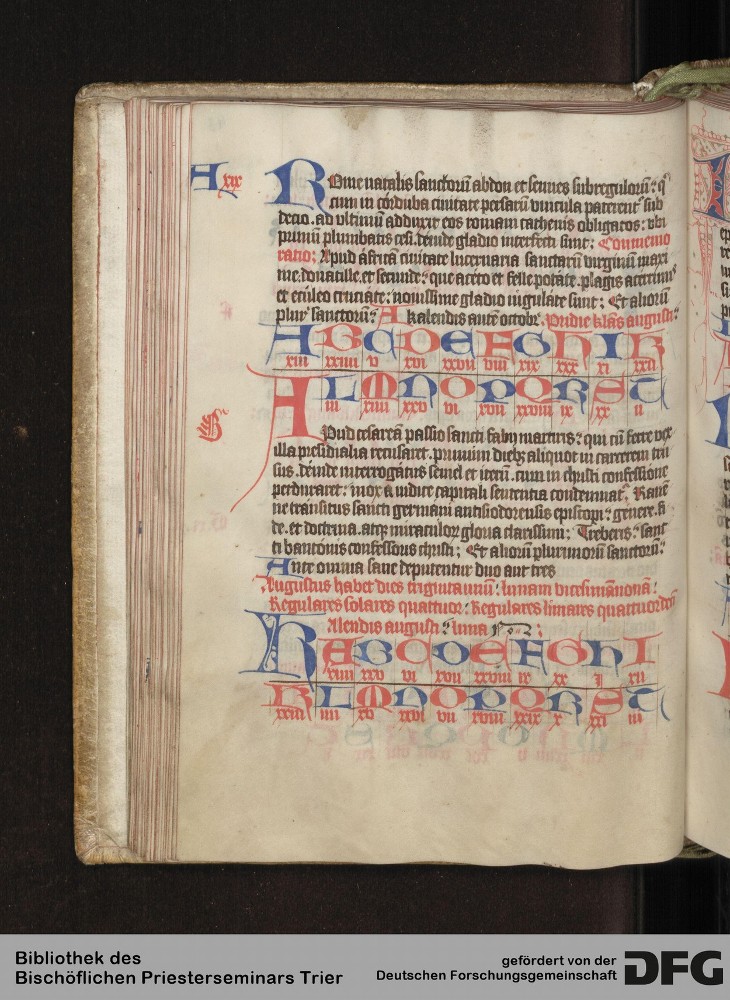 A xix
Rome natalis sanctorũ abdon et sennes subregulorũ: q̇
cum in corduba ciuitate persarũ vincula paterent' sub
decio. ad vltimũ adduxit eos romam cathenis obligatos: vbi
primũ plumbatis cesi. deinde gladio interfecti sunt: Commemo
ratio: Apud africã ciuitate lucernaria sanctarũ virginũ maxi
me. donatille. et secunde: que aceto et felle potate. plagis acerrim'
et eculeo cruciate: nouissime gladio iugulate sunt: Et aliorũ
plur' sanctorũ: A kalendis autẽ octobr. Pridie kl̃as augusti:
A B C D E F G H I K
xiii xxiiii v xvi xxvii viii xix xxx xi xxii
L M N O P Q R S T
iii xiiii xxv vi xvii xxviii ix xx ii
B
Apud cesareã passio sancti fabij martiris: qui cũ ferre vex
illa presidialia recusaret. primũm dieb3 aliquot in carcerem tru
sus. deinde interrogatus semel et iterũ. cum in christi confessione
perduraret: mox a iudice capitali sententia condemnat'. Rauen
ne transitus sancti germani antisiodorensis episcopi: genere. fi
de. et doctrina. atq3 miraculor gloria clarissimi: Treberis: sanc
ti bantonis confessoris christi; Et aliorũ plurimorũ sanctorũ:
Ante omnia sane deputentur duo aut tres
Augustus habet dies trigintaunũ: lunam vicesimãnonã:
Regulares solares quattuor: Regulares lunares quattuordecĩ
Kalendis augusti: luna
A B C D E F G H I
xiiii xxv vi xvii xxviii ix xx I xii
K L M N O P Q R S T
xxiii iiii xv xxvi vii xviii xxix x xxi iii
Bibliothek des
Bischöflichen Priesterseminars Trier
gefördert von der
Deutschen Forschungsgemeinschaft
DFG